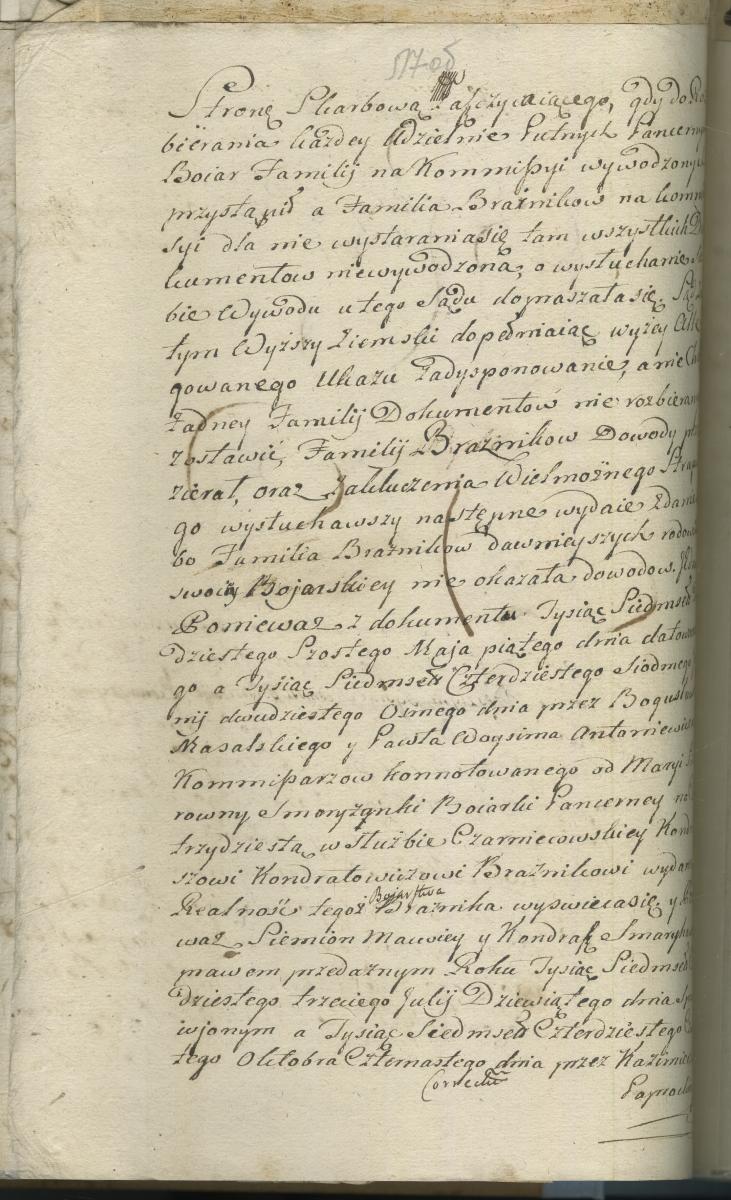 517 об
Stronę Skarbową assczycaiącego, gdy do Ro
bierania każdey udzielnie Putnych Pancerny
Boiar Familij na Kommissyi wywodzony
przystąpił a Familia Braźnikow na komm
syi dla nie wystaraniasię tam wszystkich Do
kumentow niewywodzona, o wysłuchanie
bie Wywodu u tego Sądu dopraszałasię. Sąd
tym Wyższy Ziemski dopełniaiąc wyżey Alle
gowanego Ukazu Zadysponowanie, a nie Ch
żadney Familij Dokumentow nie rozbieran
zostawić, Familij Braźnikow Dowody prze
zierał, oraz Zakluczenia Wielmożnego Strap
go wysłuchawszy następne wydaie Zdani
bo Familia Braźnikow dawnieyszych rodow
swoiey Bojarskiey nie okazała dowodow.
Ponieważ z dokumentu Tysiąc Siedmset
dziestego Szostego Maja piątego dnia datowa
go a Tysiąc Siedmset Czterdziestego Siodmego
nij dwudziestego Osmego dnia przez Bogusław
Masalskiego y Pawła Woysima Antoniewi
Kommissarzow konnotowanego od Maryi
rowny Smoryżąnki Boiarki Pancerney na
trzydziestą w Służbie Czarniecowskiey Kond
szowi Kondratowiczowi Braźnikowi wydan
Realność tegoż Bojarstwa Braźnika wyświecasię, y
waż Siemion Maciey y Kondrat Smaryh
prawem przedaznym Roku Tysiąc Siedmset
dziestego trzeciego Julij Dziewiątego dnia Sp
wjonym a Tysiąc Siedmset Czterdziestego
tego Oktobra Czternastego dnia przez Kazimie
Paproc